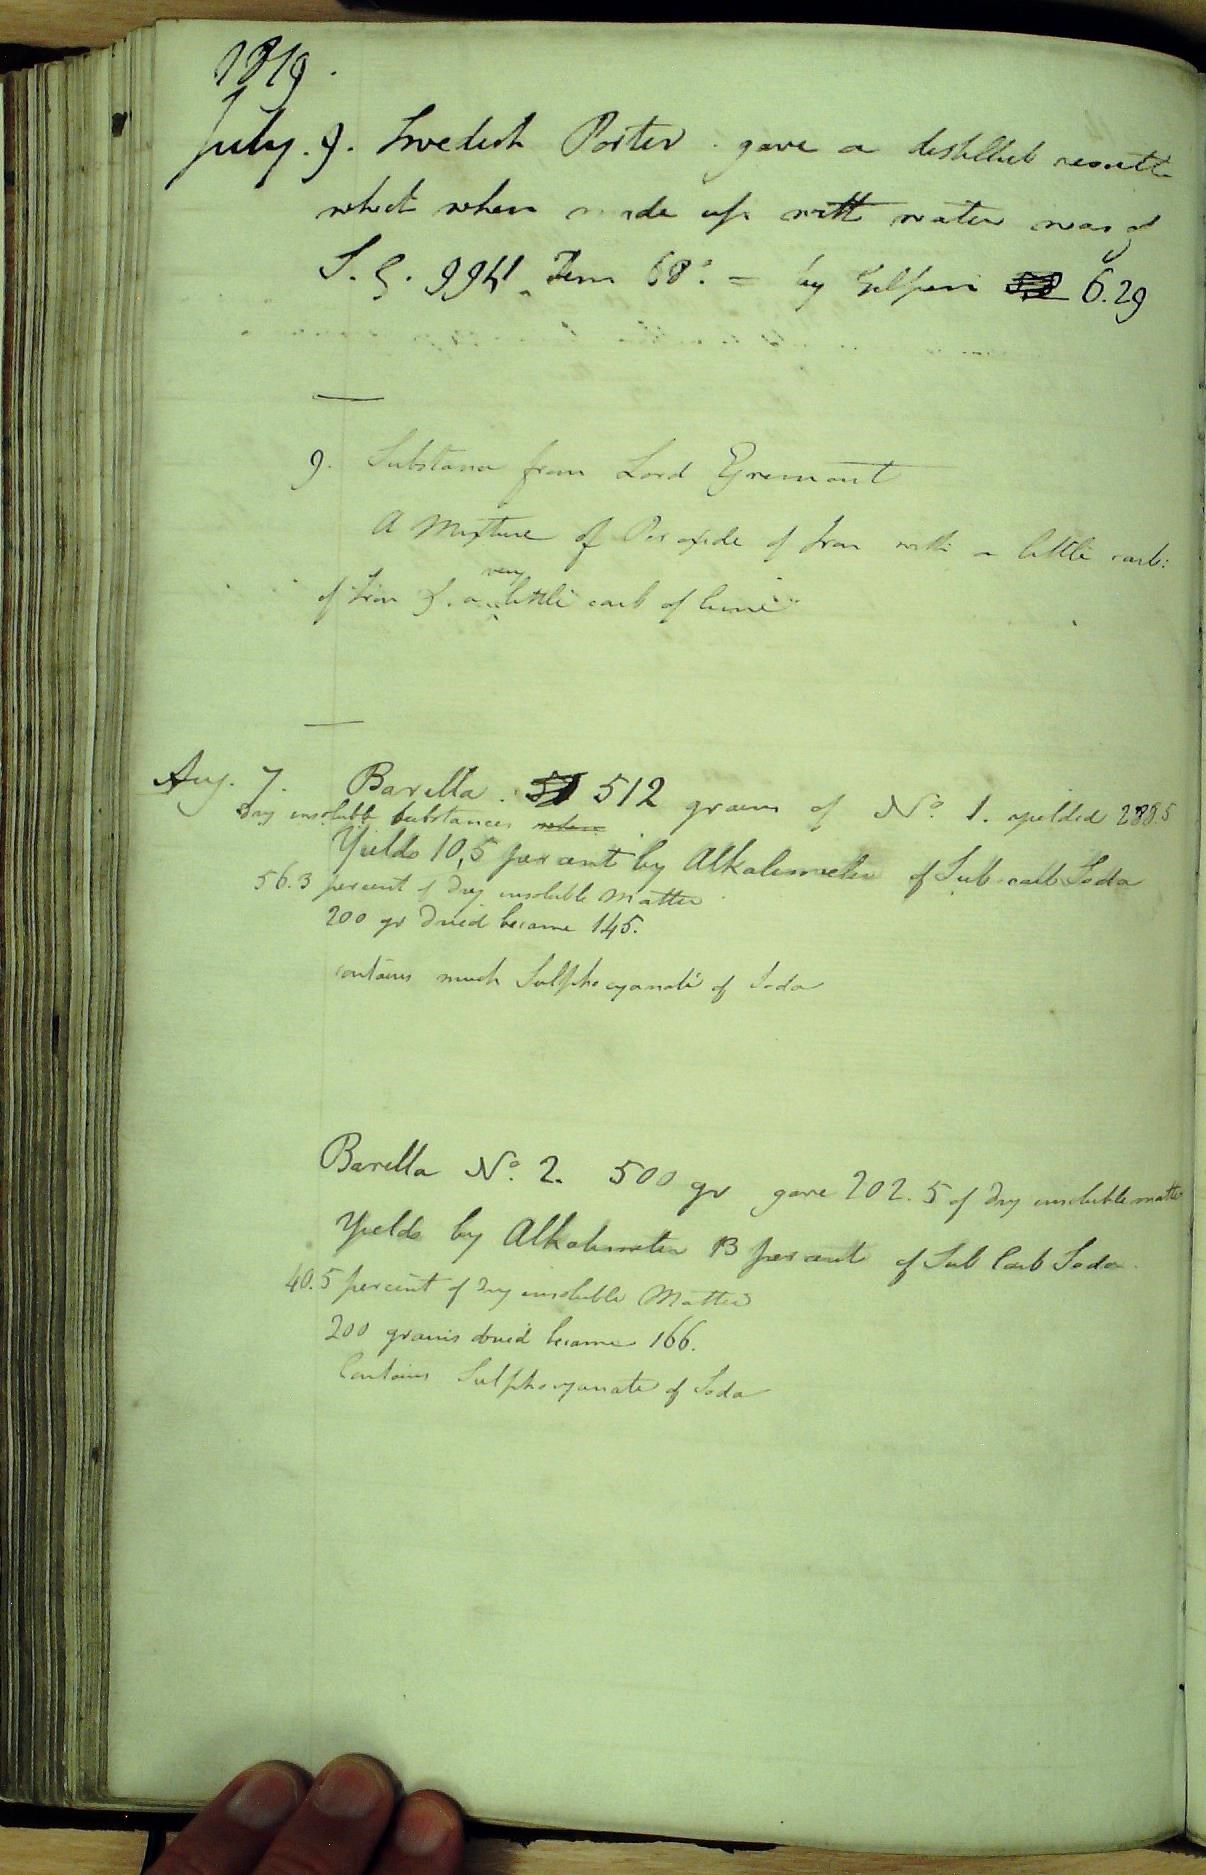 1819.
July. 9. Swedish Porter. gave a distilled result
which when made up with water was of
S. G. 9941 Tem 68°. = by Gilpin 6.29
9. Substance from Lord Egremont
A Mixture of Peroxide of Iron with a little carb:
of Iron & a very little carb of lime
Aug. 7. Barilla. 512 grains of No. 1. yielded 288.5
Dry insoluble substances when
Yields 10,5 per cent by Alkalimeter of Sub carb Soda
56.3 percent of Dry insoluble Matter
200 gr Dried became 145.
contains much Sulphocyanate of Soda
Barilla No. 2. 500 gr gave 202.5 of Dry insoluble matter
Yields by Alkalimeter 13 per cent of Sub Carb Soda.
40.5 percent of Dry insoluble Matter
200 grains dried became 166.
Contains Sulphocyanate of Soda